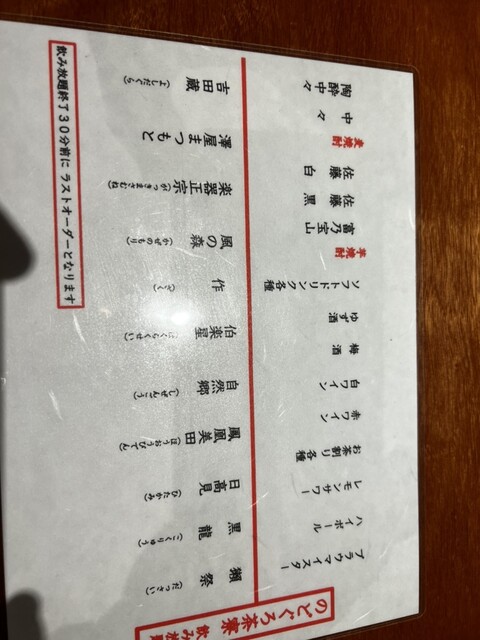 のどぐろ茶寮
飲み放
ブラウマイスター
ハイボール
レモンサワー
お茶割り各種
赤ワイン
白ワイン
梅酒
ゆず酒
ソフトドリンク各種
芋焼酎
富乃宝山
佐藤 黒
佐藤 白
麦焼酎
中々
陶酔中々
獺祭(だっさい)
黒龍(こくりゅう)
日高見(ひたかみ)
鳳凰美田(ほうおうびでん)
自然郷(しぜんごう)
伯楽星(はくらくせい)
作(ざく)
風の森(かぜのもり)
楽器正宗(がっきまさむね)
澤屋まつもと
吉田蔵(よしだくら)
飲み放題終了30分前に ラストオーダーとなります